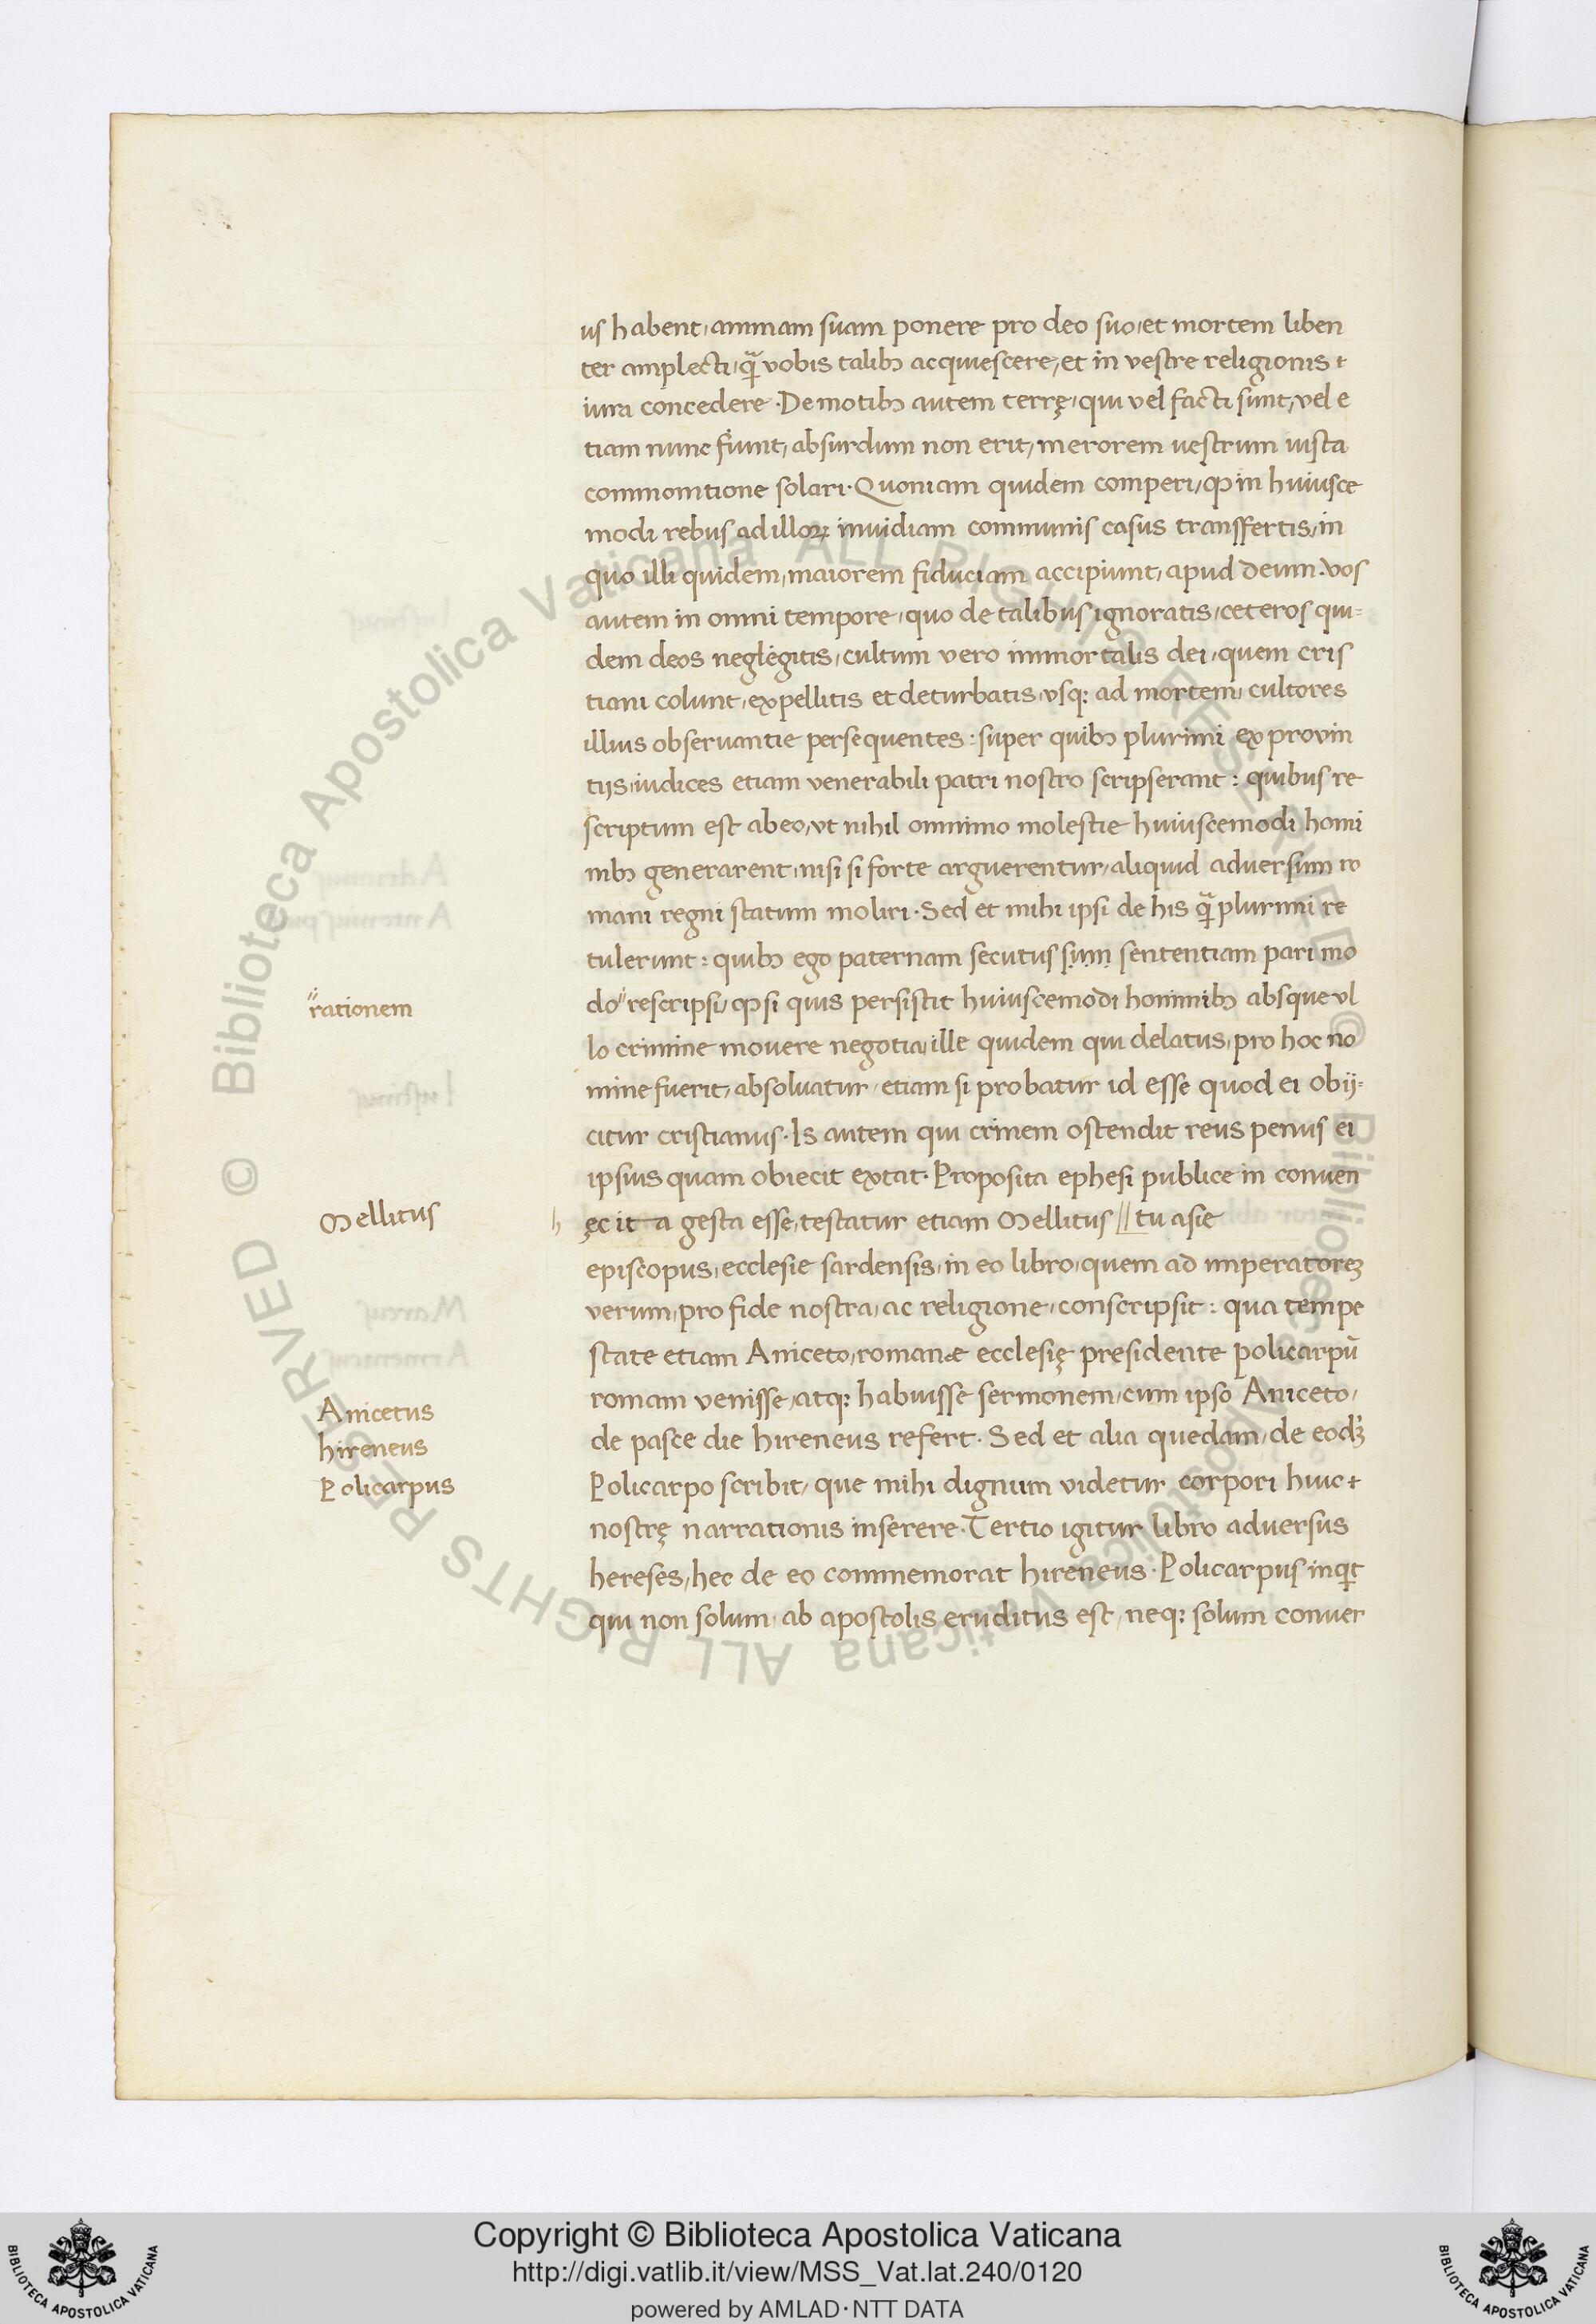 us habent, animam suam ponere pro deo suo, et mortem liben
ter amplecti, qͣ̃ vobis talibꝫ acquiescere, et in vestre religionis
iura concedere. De motibꝫ autem terrę, qui vel facti sunt, vel e
tiam nunc fiunt, absurdum non erit, merorem uestrum iusta
commonitione solari. Quoniam quidem comperi, ꝙ in huiusce
modi rebus ad illoꝝ inuidiam communis casus transfertis, in
quo illi quidem, maiorem fiduciam accipiunt, apud deum. vos
autem in omni tempore, quo de talibus ignoratis, ceteros qui=
dem deos neglegitis, cultum vero immortalis dei, quem cris
tiani colunt, expellitis et deturbatis, vsqꝫ ad mortem, cultores
illius obseruantie persequentes: super quibꝫ plurimi ex provin
tijs, iudices etiam venerabili patri nostro scripserant: quibus re
scriptum est ab eo, vt nihil omnimo molestie huiuscemodi homi
nibꝫ generarent, nisi si forte arguerentur, aliquid adversum ro
mani regni statum moliri. Sed et mihi ipsi de his qͣ̃ plurimi re
tulerunt: quibꝫ ego paternam secutus sum sententiam pari mo
do" rescripsi, ꝙ si quis persistit huiuscemodi hominibꝫ absque vl
"rationem
lo crimine mouere negotia, ille quidem qui delatus, pro hoc no
mine fuerit, absoluatur, etiam si probatur id esse quod ei obij=
citur cristianus. Is autem qui crimem ostendit reus penus ei
ipsius quam obiecit extat. Proposita ephesi publice in conuen
Mellitus
h ęc ita gesta esse, testatur etiam Mellitus // tu asie
episcopus, ecclesie sardensis, in eo libro, quem ad imperatoreꝫ
verum, pro fide nostra, ac religione, conscripsit: qua tempe
state etiam Aniceto, romanæ ecclesię presidente policarpū
romam venisse, atqꝫ habuisse sermonem, cum ipso Aniceto,
Anicetus
de pasce die hireneus refert. Sed et alia quedam, de eodꝫ
hireneus
Policarpo scribit, que mihi dignum videtur corpori huic
Policarpus
nostrę narrationis inserere. Tertio igitur libro adversus
hereses, hec de eo commemorat hireneus. Policarpus inqͥt
qui non solum, ab apostolis eruditus est, neqꝫ solum conuer
© Biblioteca Apostolica Vaticana ALL RIGHTS RESERVED © Biblioteca Apostolica Vaticana ALL RIGHTS RESERVED
Copyright © Biblioteca Apostolica Vaticana
http://digi.vatlib.it/view/MSS_Vat.lat.240/0120
powered by AMLAD·NTT DATA
BIBLIOTECA APOSTOLICA VATICANA
BIBLIOTECA APOSTOLICA VATICANA